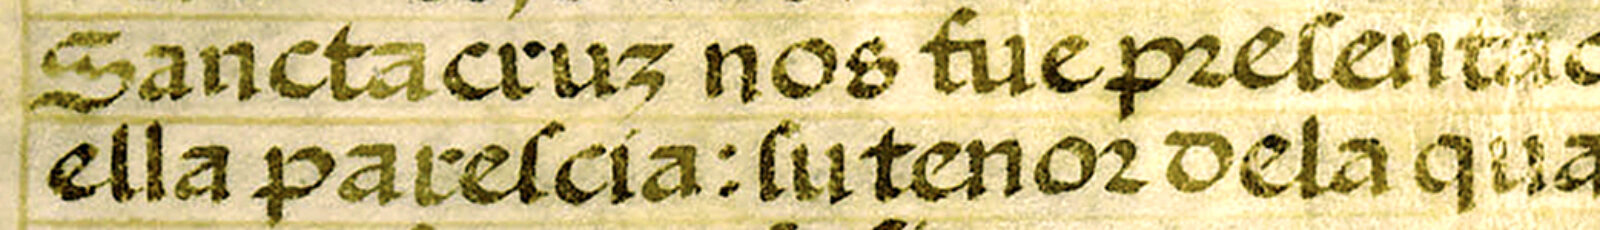 Sancta cruz nos fue presentad
ella parescia: su tenor dela qua